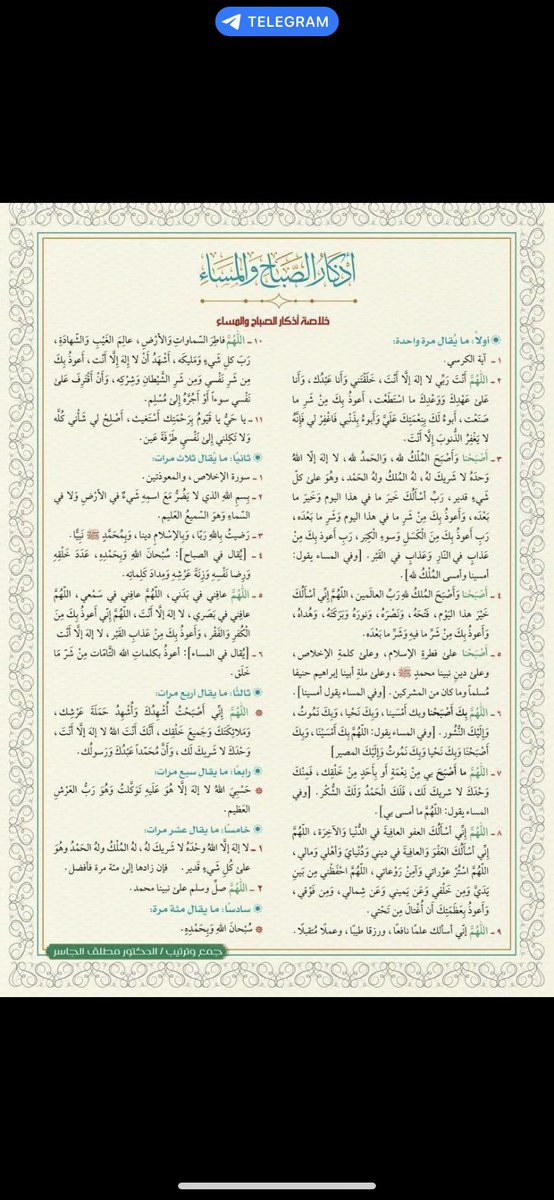 TELEGRAM
أذكار الصباح والمساء
خلاصة أذكار الصباح والمساء
أولاً: ما يُقال مرة واحدة:
١ - آية الكرسي.
٢ - اللَّهُمَّ أَنْتَ رَبِّي لا إلهَ إلَّا أَنْتَ، خَلَقْتَني وَأَنا عَبْدُك، وَأَنا
عَلى عَهْدِكَ وَوَعْدِكَ ما اسْتَطَعْت، أَعوذُ بِكَ مِنْ شَرِ ما
صَنَعْت، أَبوءُ لَكَ بِنِعْمَتِكَ عَلَيَّ وَأَبوءُ بِذَنْبي فَاغْفِرْ لي فَإِنَّهُ
لا يَغْفِرُ الذُّنوبَ إلَّا أَنْتَ.
٣ - أَصْبَحْنا وَأَصْبَحَ المُلْكُ لله، وَالحَمدُ لله، لا إلهَ إلَّا اللهُ
وَحدَهُ لا شَريكَ لهُ، لهُ المُلكُ ولهُ الحَمْد، وهُوَ على كلّ
شَيءٍ قدير، رَبِّ أسْأَلُكَ خَيرَ ما في هذا اليوم وَخَيرَ ما
بَعْدَه، وَأَعوذُ بِكَ مِنْ شَرِ ما في هذا اليوم وَشَرِ ما بَعْدَه،
رَبِ أَعوذُ بِكَ مِنَ الكَسَلِ وَسوءِ الكِبَر، رَبِ أَعوذُ بِكَ مِنْ
عَذابٍ في النّارِ وَعَذابٍ في القَبْر. [وفي المساء يقول:
أمسينا وأمسى المُلْكُ لله].
٤ - أَصْبَحْنا وَأَصْبَحَ المُلكُ للهِ رَبِّ العالَمين، اللَّهُمَّ إِنّي أَسْأَلُكَ
خَيْرَ هذا اليَوْم، فَتْحَهُ، وَنَصْرَهُ، وَنورَهُ وَبَرَكَتَهُ، وَهُداهُ،
وَأَعوذُ بِكَ مِنْ شَرِّ ما فيهِ وَشَرِّ ما بَعْدَه.
٥ - أَصْبَحْنا على فطرةِ الإسلام، وعلى كلمةِ الإخلاص،
وعلى دينِ نبينا محمدٍ ﷺ، وعلى ملةِ أبينا إبراهيم حنيفا
مُسلماً وما كان من المشركين. [وفي المساء يقول أمسينا].
٦ - اللَّهُمَّ بِكَ أَصْبَحْنا وبك أمْسَينا، وَبِكَ نَحْيا، وَبِكَ نَمُوتُ،
وَإِلَيْكَ النُّشُور. [وفي المساء يقول: اللَّهُمَّ بِكَ أَمْسَيْنَا، وَبِكَ
أَصْبَحْنا وَبِكَ نَحْيا وَبِكَ نَمُوتُ وَإِلَيْكَ المصير]
٧ - اللَّهُمَّ ما أَصْبَحَ بي مِنْ نِعْمَةٍ أو بِأَحَدٍ مِنْ خَلْقِك، فَمِنْكَ
وَحْدَكَ لا شريكَ لك، فَلَكَ الْحَمْدُ وَلَكَ الشُّكْر. [وفي
المساء يقول: اللَّهُمَّ ما أمسى بي].
٨ - اللَّهُمَّ إِنِّي أَسأَلُكَ العفو العافِيَةَ في الدُّنْيا وَالآخِرَة، اللَّهُمَّ
إِنِّي أَسأَلُكَ العَفْوَ وَالعافِيَةَ في ديني وَدُنْيايَ وَأهْلي وَمالي،
اللَّهُمَّ اسْتُرْ عوْراتي وَآمِنْ رَوْعاتي، اللَّهُمَّ احْفَظْني مِن بَينِ
يَدَيَّ وَمِن خَلْفي وَعَن يَميني وَعَن شِمالي، وَمِن فَوْقي،
وَأَعوذُ بِعَظَمَتِكَ أَن أُغْتالَ مِن تَحْتي.
٩ - اللَّهُمَّ إنّي أسألك علمًا نافعًا، ورزقا طيبًا، وعملًا متقبلًا.
١٠ - اللَّهُمَّ فاطِرَ السّماواتِ وَالأرْضِ، عالِمَ الغَيْبِ وَالشّهادَةِ،
رَبَّ كلِ شَيءٍ وَمَليكَه، أَشْهَدُ أَنْ لا إِلهَ إِلَّا أَنْت، أَعوذُ بِكَ
مِن شَرِ نَفْسي وَمِن شَرِ الشَّيْطانِ وَشِرْكِه، وَأَنْ أَقْتَرِفَ عَلى
نَفْسي سوءاً أَوْ أَجُرَّهُ إِلى مُسْلِم.
١١ - يا حَيُّ يا قَيُّومُ بِرَحْمَتِكَ أَسْتَغيث، أَصْلِحْ لي شَأني كُلَّه
وَلا تَكِلني إِلى نَفْسي طَرْفَةَ عَين.
ثانيًا: ما يُقال ثلاث مرات:
١ - سورة الإخلاص، والمعوذتين.
٢ - بِسمِ اللهِ الذي لا يَضُرُّ مَعَ اسمِهِ شَيءٌ في الأرْضِ وَلا في
السّماءِ وَهوَ السّميعُ العَليم.
٣ - رَضيتُ بِاللهِ رَبّا، وَبِالإسْلامِ دينا، وَبِمُحَمَّدٍ ﷺ نَبِيًّا.
٤ - [يُقال في الصباح]: سُبْحانَ اللهِ وَبِحَمْدِهِ، عَدَدَ خَلْقِهِ
وَرِضا نَفْسِهِ وَزِنَةَ عَرْشِهِ وَمِدادَ كَلِماتِه.
٥ - اللَّهُمَّ عافِني في بَدَني، اللَّهُمَّ عافِني في سَمْعي، اللَّهُمَّ
عافِني في بَصَري، لا إلهَ إلَّا أَنْتَ، اللَّهُمَّ إِنّي أَعوذُ بِكَ مِنَ
الْكُفْرِ وَالفَقْرِ، وَأَعوذُ بِكَ مِنْ عَذابِ القَبْرِ، لا إلهَ إلَّا أَنْتَ
٦ - [يُقال في المساء]: أعوذُ بكلماتِ اللهِ التَّامّات مِنْ شَرّ مّا
خَلَق.
ثالثًا: ما يقال أربع مرات:
اللَّهُمَّ إِنِّي أَصْبَحْتُ أُشْهِدُكَ وَأُشْهِدُ حَمَلَةَ عَرْشِك،
وَمَلائِكَتَكَ وَجَميعَ خَلْقِك، أَنَّكَ أَنْتَ اللهُ لا إلهَ إلَّا أَنْتَ،
وَحْدَكَ لا شَريكَ لَك، وَأَنَّ مُحَمَّداً عَبْدُكَ وَرَسولُك.
رابعًا: ما يقال سبع مرات:
حَسْبِيَ اللهُ لا إلهَ إلَّا هُوَ عَلَيهِ تَوَكَّلتُ وَهُوَ رَبُّ العَرْشِ
العَظيم.
خامسًا: ما يقال عشر مرات:
١ - لا إلهَ إلَّا اللهُ وحْدَهُ لا شَرِيكَ لَهُ، لهُ المُلْكُ ولهُ الحَمْدُ وهُوَ
عَلى كُلّ شَيْءٍ قَدير. فإن زادها إلى مئة مرة فأفضل.
٢ - اللَّهُمَّ صلِّ وسلم على نبينا محمد.
سادسًا: ما يقال مئة مرة:
سُبْحانَ اللهِ وَبِحَمْدِهِ.
جمع وترتيب / الدكتور مطلق الجاسر